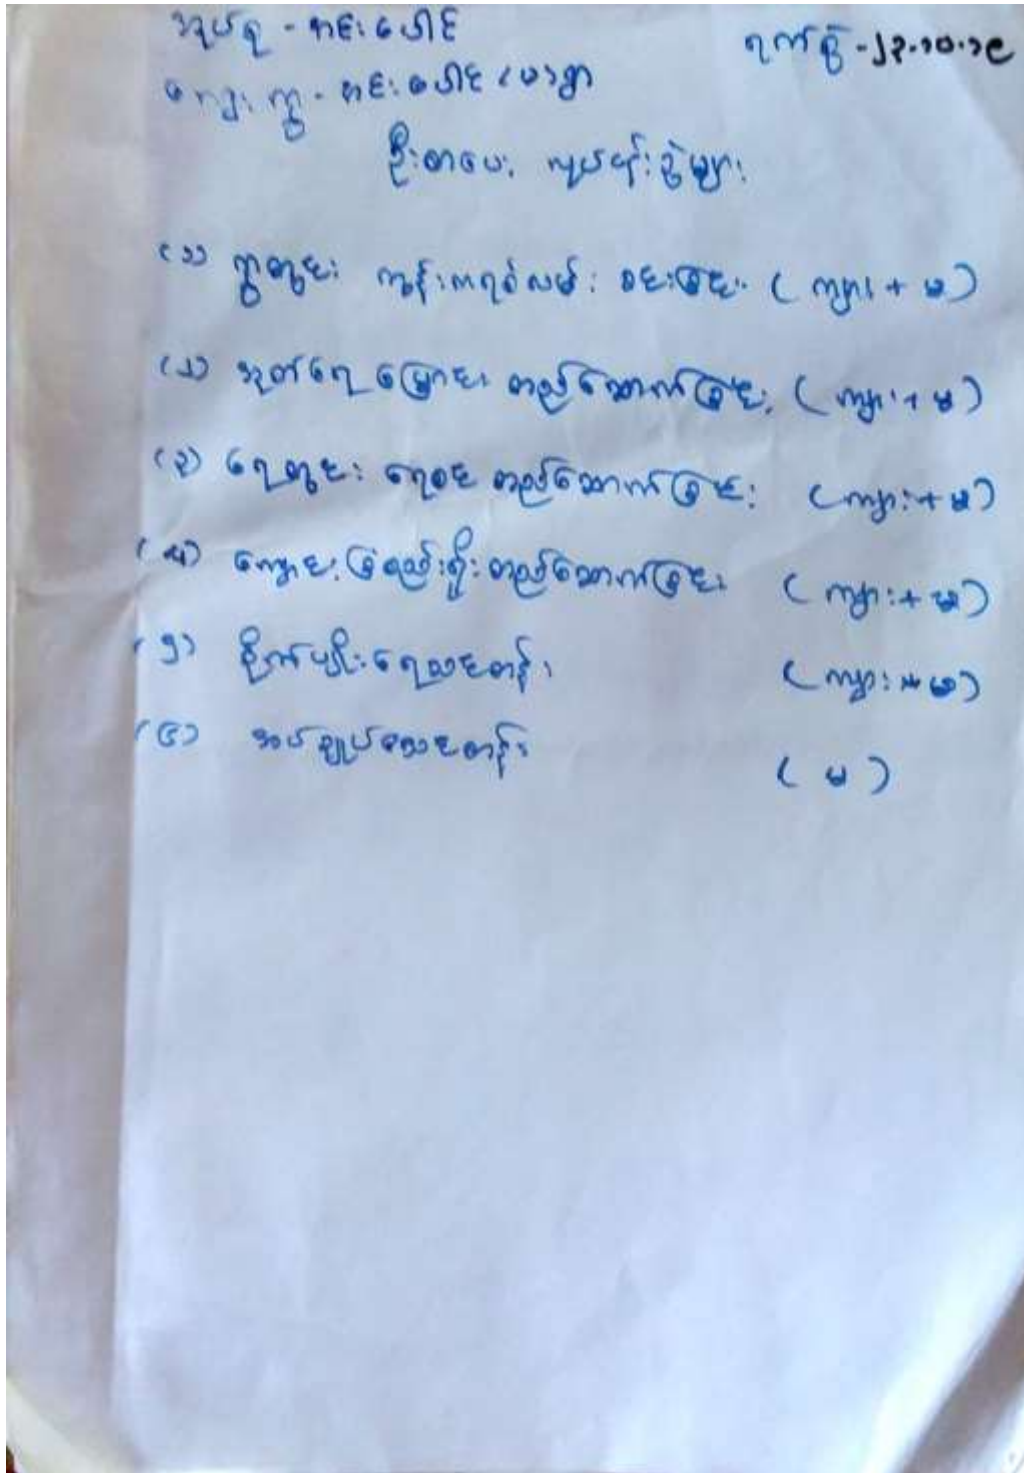 အုပ်စု - ကင်းပေါင် ရက်စွဲ - ၂၃.၁၀.၁၉
ကျေးရွာ - ကင်းပေါင် (မ) ရွာ
ဦးစားပေး လုပ်ငန်းစဉ်များ
(၁) ရွာတွင်း ကွန်ကရစ်လမ်း ခင်းခြင်း (ကျား + မ)
(၂) အုတ်ရေမြောင်း တည်ဆောက်ခြင်း (ကျား + မ)
(၃) ရေတွင်း ရေစင် တည်ဆောက်ခြင်း (ကျား + မ)
(၄) ကျောင်းခြံစည်းရိုးတည်ဆောက်ခြင်း (ကျား + မ)
(၅) စိုက်ပျိုးရေးသင်တန်း (ကျား + မ)
(၆) အပ်ချုပ်သင်တန်း (မ)